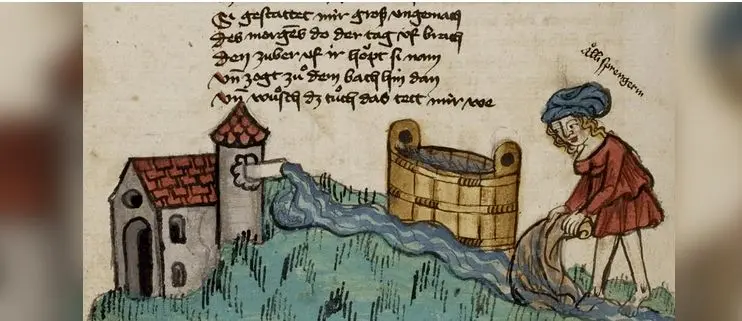 Si gestattet mir groß vngemach
Des morgēs do der tag vf brach
Den zuber vf ir hoͤpt si nam
Vn̄ zogt zuͦ dem bach hin dan
Vn̄ wuͦsch dz tuͦch das tett mir we
sprengerin